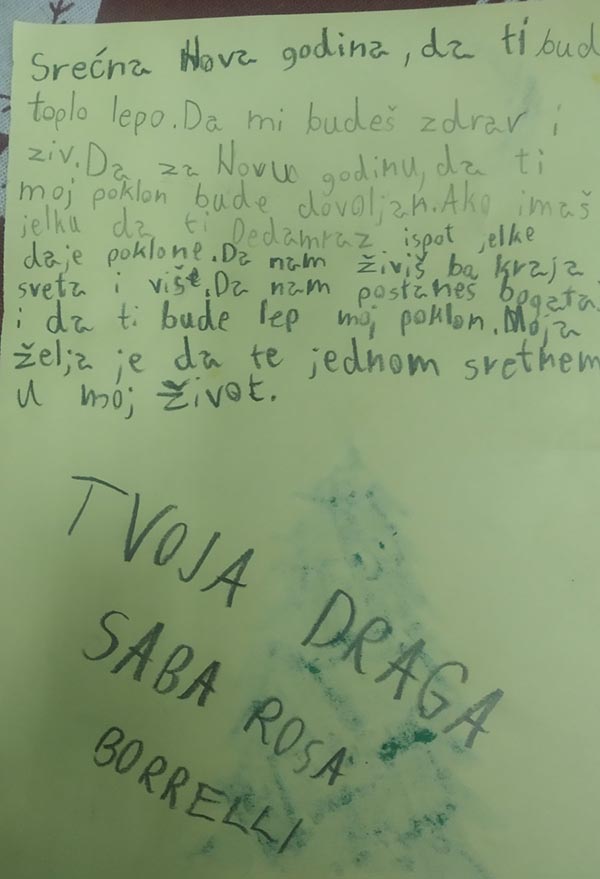 Srećna Nova godina, da ti bud
toplo lepo. Da mi budeš zdrav i
živ. Da za Novu godinu, da ti
moj poklon bude dovoljan. Ako imaš
jelku da ti Dedamraz ispot jelke
daje poklone. Da nam živiš ba kraja
sveta i više. Da nam postaneš bogata
i da ti bude lep moj poklon. Moja
želja je da te jednom srethem
U moj život.
TVOJA DRAGA
SABA ROSA
BORRELLI